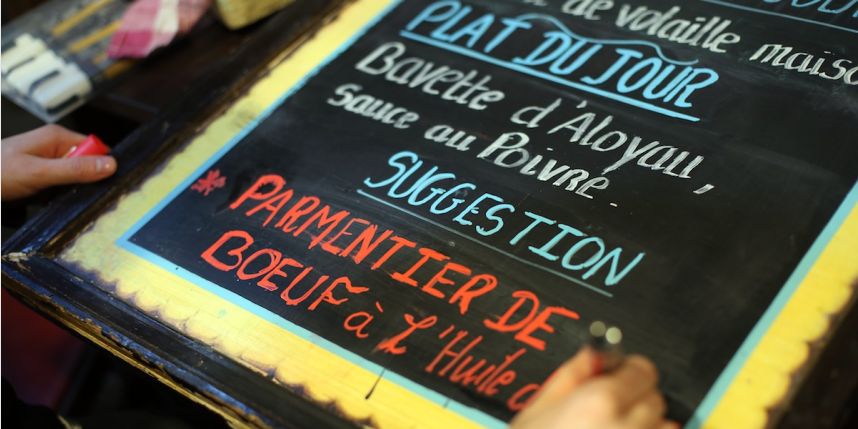 de volaille maiso
PLAT DU JOUR
Bavette d'Aloyau,
sauce au Poivre.
SUGGESTION
* PARMENTIER DE
BOEUF à L'Huile